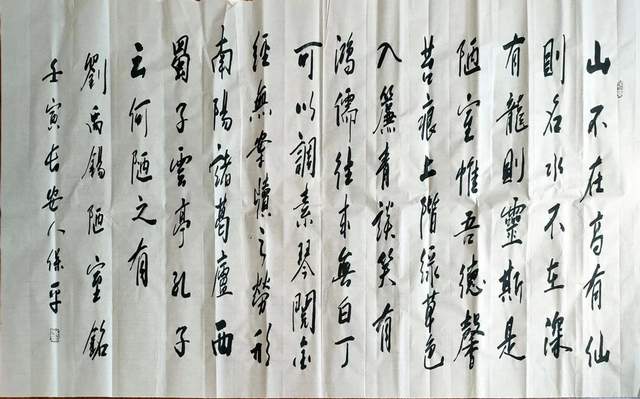 山不在高有仙
則名水不在深
有龍則靈斯是
陋室惟吾德馨
苔痕上階綠草色
入簾青談笑有
鴻儒往來無白丁
可以調素琴閱金
經無案牘之勞形
南陽諸葛廬西
蜀子雲亭孔子
云何陋之有
劉禹錫陋室銘
壬寅長安人保平